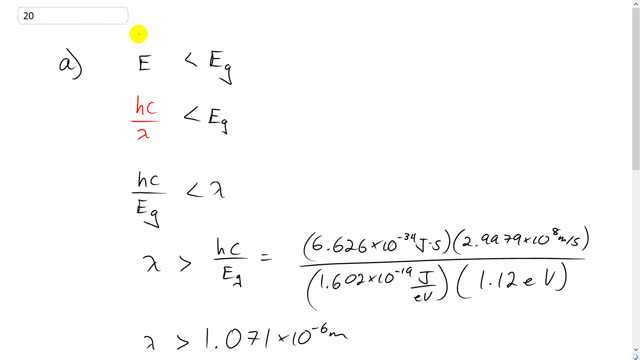 20
a) E < Eg
hc/λ < Eg
hc/Eg < λ
λ > hc/Eg = (6.626×10⁻³⁴ J·s)(2.9979×10⁸ m/s) / (1.602×10⁻¹⁹ J/eV)(1.12 eV)
λ > 1.071×10⁻⁶ m